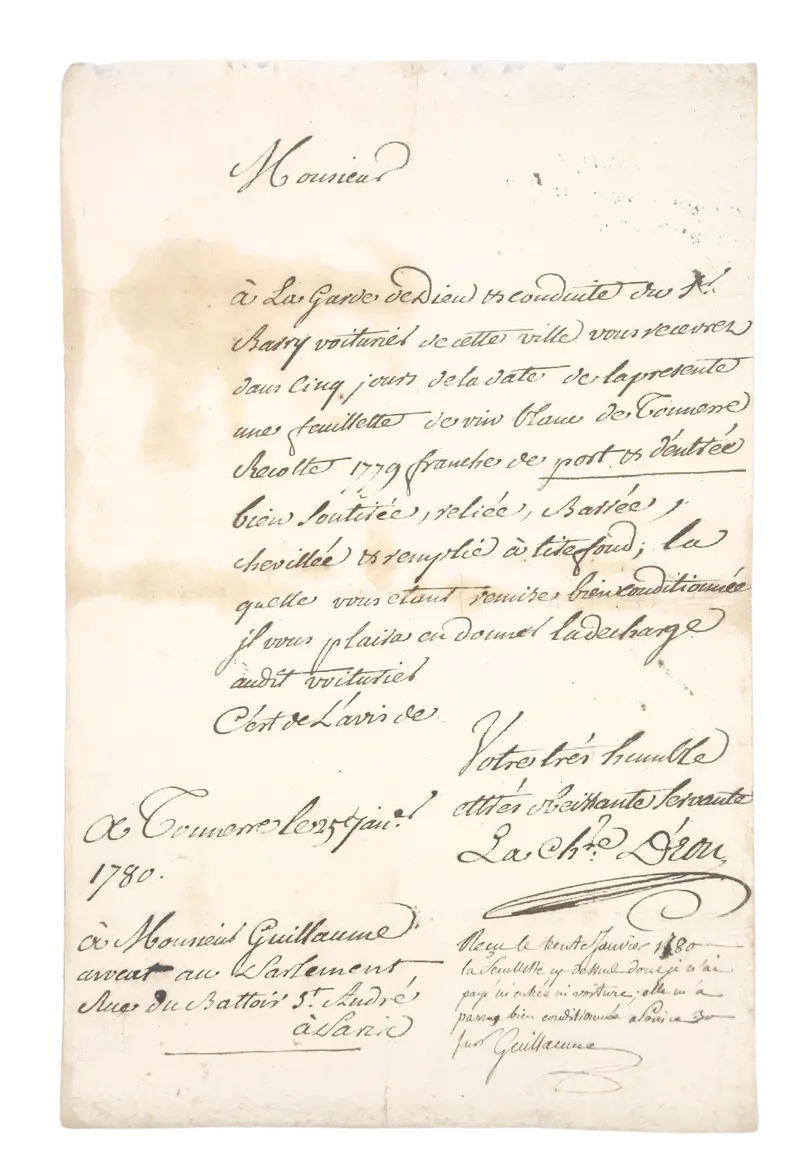 Monsieur
à La Garde de Dieu & conduite du Sr.
Barry voiturier de cette ville vous recevrez
dans Cinq jours de la date de la presente
une feuillette de vin blanc de Tonnerre
Recolte 1779 franche de port & d'entrée
bien soutirée, reliée, Barrée,
chevillée & remplie à tire fond; la
quelle vous etant remise bien conditionnée
jl vous plaira en donner la decharge
audit voiturier
C'est de L'avis de
Votre très humble
et très obeissante servante
La Chre. D'Eon
A Tonnerre le 25 janr.
1780.
à Monsieur Guillaume
avocat au Parlement
Rue du Battoir St. André
à Paris
Reçu le trente Janvier 1780
la feuillette cy-dessus dont je n'ai
payé ni entrée ni voiture; elle m'a
parue bien conditionnée a Paris ce 30
janr Guillaume